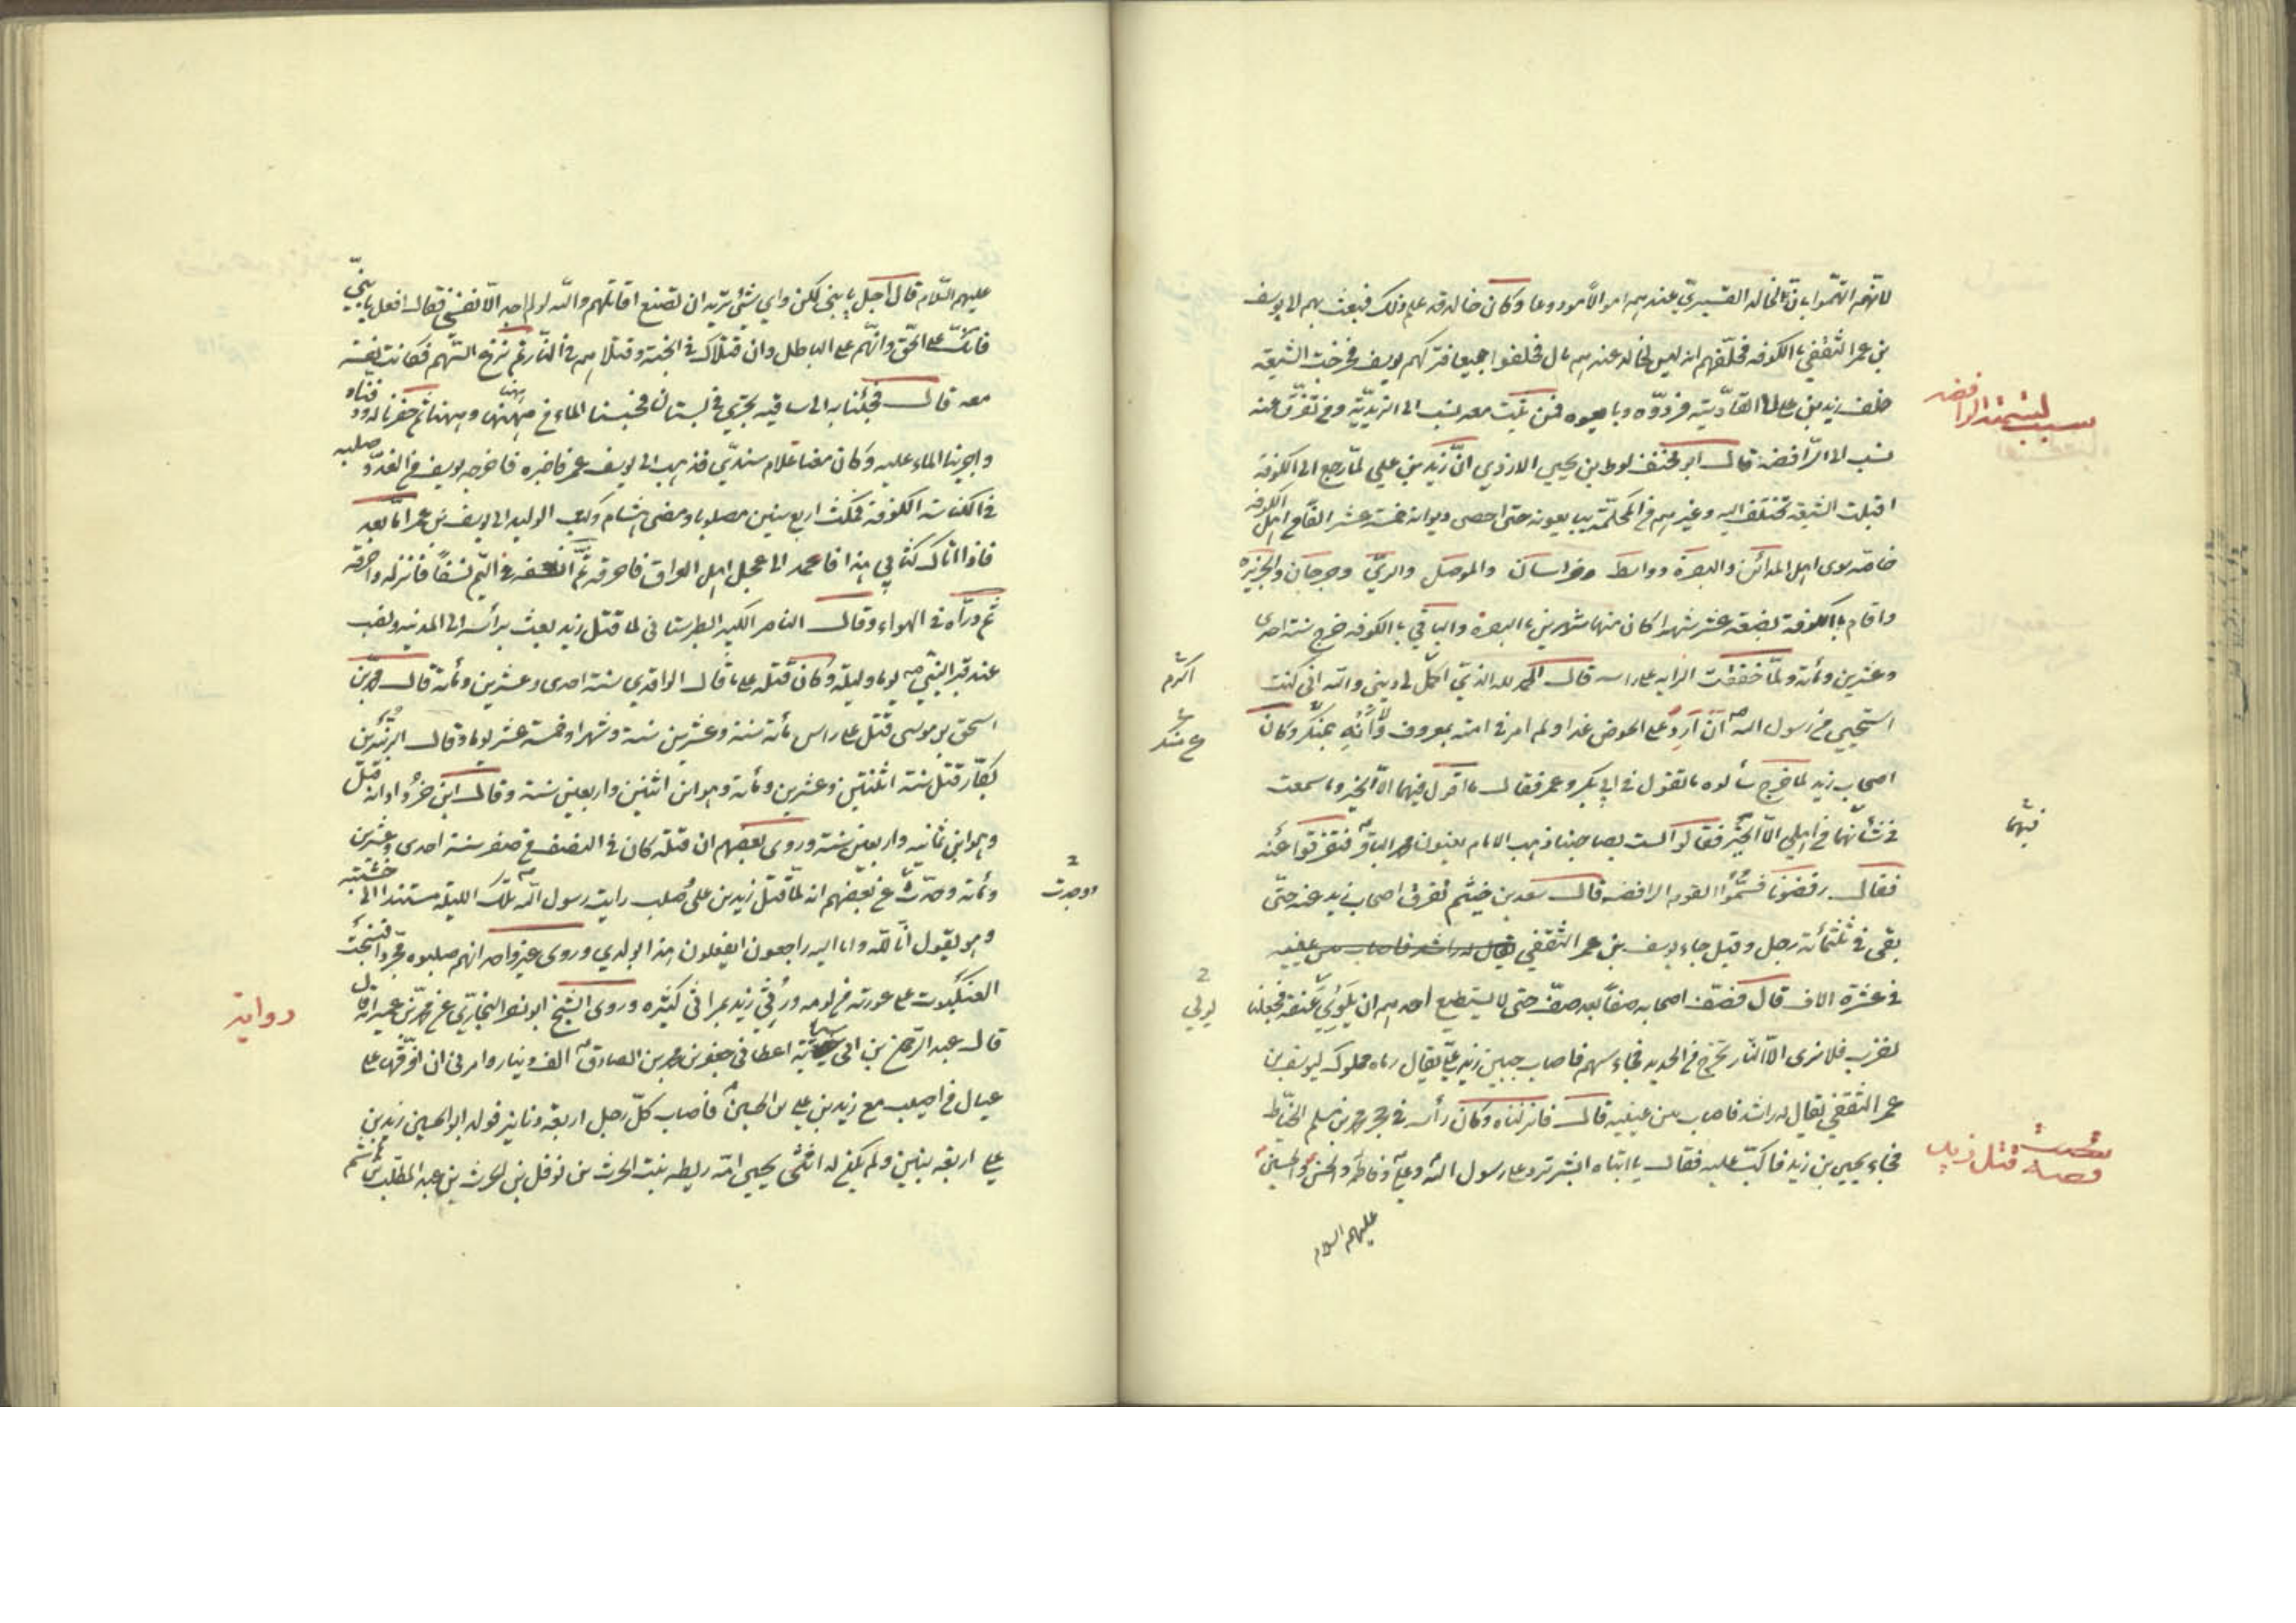 لانهم اتهموا بان لخالد القسيري عندهم اموالا مودوعا وكان خالد قد علم ذلك فبعث بهم الى يوسف
بن عمر الثقفي بالكوفه فحلفهم انه ليس لخالد عندهم مال فحلفوا جميعا فتركهم يوسف فخرجت الشيعه
خلف زيد بن علي الى القادسيه فردوه وبايعوه فمن ثبت معه نسب الى الزيدية ومن تفرق عنه
نسب الى الرافضه قال ابو مخنف لوط بن يحيى الازدي ان زيد بن علي لما رجع الى الكوفة
اقبلت الشيعه تختلف اليه وغيرهم من المحكمة يبايعونه حتى احصى ديوانه خمسة عشر الفا من اهل الكوفه
خاصه سوى اهل المدائن والبصرة وواسط وخراسان والموصل والري وجرجان والجزيرة
واقام بالكوفة بضعة عشر شهرا كان منها شهرين بالبصرة والباقي بالكوفه خرج سنة احدى
وعشرين ومائة ولما خفقت الرايه على راسه قال الحمد لله الذي اكمل لي ديني والله اني كنت
استحيي من رسول الله ان ارد على الحوض غدا ولم امر في امته بمعروف ولا انه بمنكر وكان
اصحاب زيد لما خرج سألوه ما تقول في ابي بكر وعمر فقال ما اقول فيهما الا الخير وما سمعت
من اهلي الا الخير فقالوا لست بصاحبنا ذهب الامام يعنون محمد الباقر فتفرقوا عنه
فقال رفضونا فسموا القوم الرافضه قال سعد بن خيثم تفرق اصحاب زيد عنه حتى
بقى في ثلثمائة رجل وقيل جاء يوسف بن عمر الثقفي يقال له راشد فاصاب من عينيه
في عشرة الاف قال فصف اصحابه صفا بعد صف حتى لا يستطيع احدهم ان يلوي عنقه فجعلنا
نضرب فلا نرى الا النار تخرج من الحديد فجاء سهم فاصاب جبين زيد بن علي يقال رماه مملوك ليوسف بن
عمر الثقفي يقال له راشد فاصاب بين عينيه قال فانزلناه وكان رأسه في حجر محمد بن مسلم الخياط
فجاء يحيى بن زيد فاكب عليه فقال يا ابتاه ابشر ترد على رسول الله وعلي وفاطمه والحسن والحسين
عليهم السلام
سبب
تسمية الرافضه
فيهما
قصة قتل زيد
اكرم
يولي
عليهم السلام قال اجل يا بني لكن واي شئ تريد ان تصنع اقاتلهم والله لو لم اجد الا نفسي فقال افعل يا بني
فانك على الحق وانهم على الباطل وان قتلاك في الجنة وقتلاهم في النار ثم نزع السهم فكانت نفسه
معه قال فجئنا به الى ساقيه تجري في بستان فحبسنا الماء من ههنا وههنا ثم حفرنا له ودفناه
واجرينا الماء عليه وكان معنا غلام سندي فذهب الى يوسف عمر فاخبره فاخرجه يوسف من الغد وصلبه
في الكناسة الكوفة فمكث اربع سنين مصلوبا ومضى هشام وكتب الوليد الى يوسف بن عمر اما بعد
فاذا اتاك كتابي هذا فاعمد الى عجل اهل العراق فاحرقه ثم انسفه في اليم نسفا فانزله واحرقه
ثم ذراه في الهواء وقال الناصر الكبير الطبرستاني لما قتل زيد بعث برأسه الى المدينه ونصب
عند قبر النبي يوما وليلة وكان قتله على ما قال الواقدي سنة احدى وعشرين ومائة قال محمد بن
اسحق بن موسى قتل على راس مائة سنة وعشرين سنة وشهرا وخمسة عشر يوما وقال الزبير بن
بكار قتل سنة اثنتين وعشرين ومائة وهو ابن اثنين واربعين سنة وقال ابن انه قتل
وهو ابن ثمانيه واربعين سنة وروى بعضهم ان قتله كان في النصف من صفر سنة احدى وعشرين
ومائة وحدث عن بعضهم انه لما قتل زيد بن علي وصلب رايت رسول الله تلك الليلة مستندا الى خشبته
وهو يقول انا لله وانا اليه راجعون ايفعلون هذا بولدي وروى غير واحد انهم صلبوه مجردا فنسجت
العنكبوت على عورته من يومه ورثي زيد بمراثي كثيره وروى الشيخ ابو نصر البخاري عن محمد بن عمير انه قال
قال عبد الرحمن بن اعطاني جعفر بن محمد بن الصادق الف دينار وامرني ان افرقها على
عيال من اصيب مع زيد بن علي بن الحسين فاصاب كل رجل اربعة دنانير فولد ابو الحسين زيد بن
علي اربعه بنين ولم يكن له انثى يحيى امه ريطه بنت الحرث بن نوفل بن الحرث بن عبد المطلب بن هاشم
ووجدت
رواية